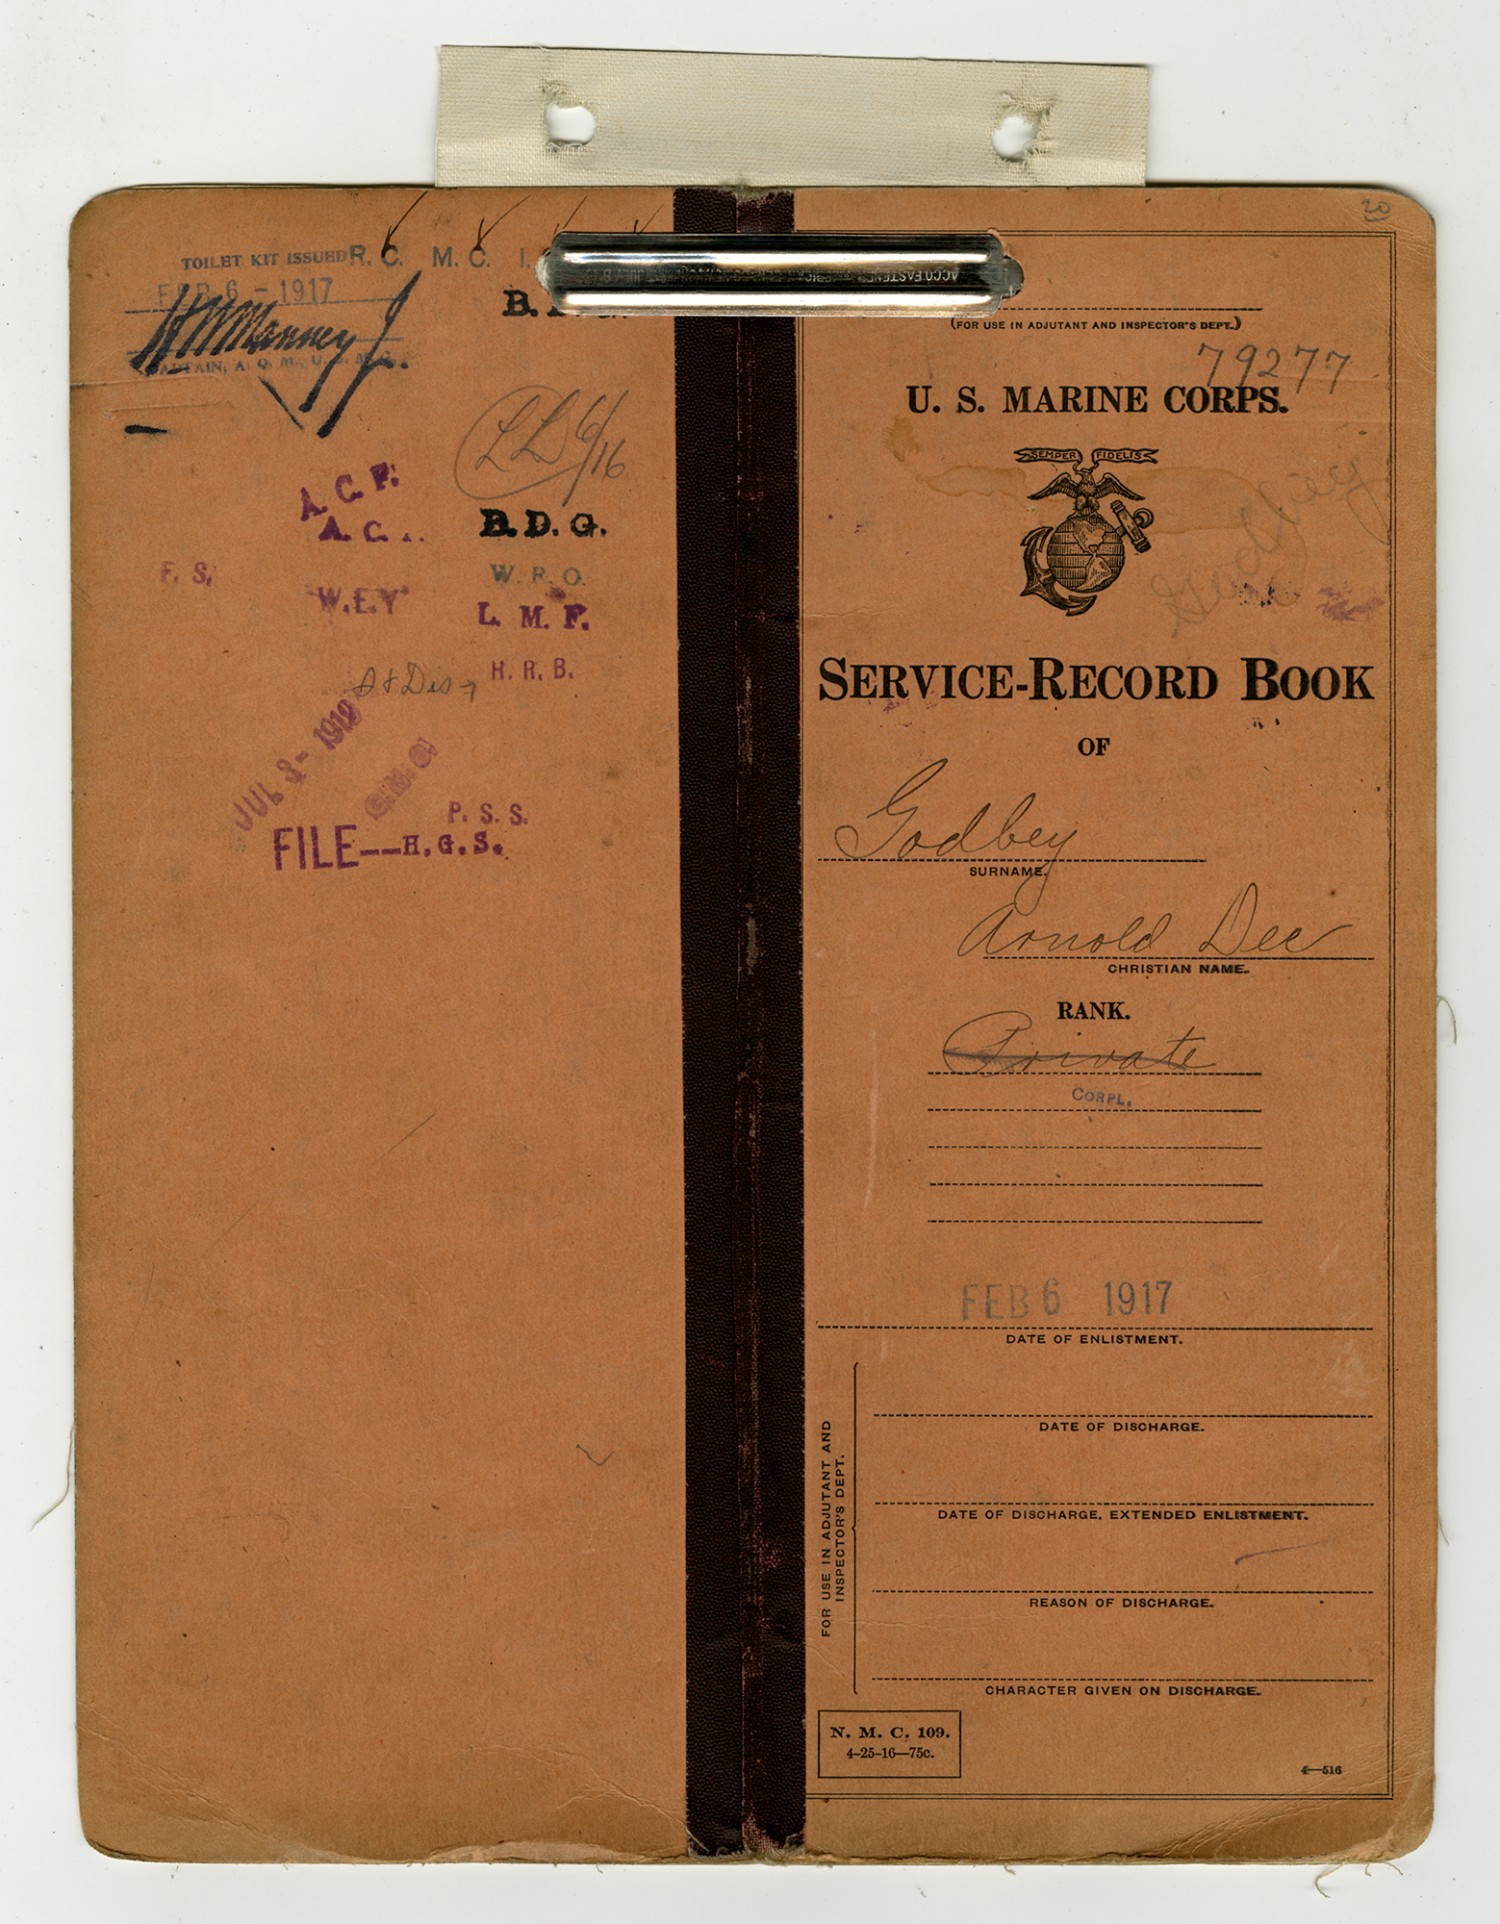 TOILET KIT ISSUED R. C. M. C. I.
FEB 6 - 1917
CAPTAIN, A. Q. M., U. S. M. C.
A. C. F.
B. D. G.
A. C.
F. S.
W. R. O.
W.E.Y
L. M. F.
H. R. B.
JUL 3 - 1919
P. S. S.
FILE--H. G. S.
20
(FOR USE IN ADJUTANT AND INSPECTOR'S DEPT.)
79277
U. S. MARINE CORPS.
SEMPER FIDELIS
Godbey
SERVICE-RECORD BOOK
OF
Godbey
SURNAME.
Arnold Dee
CHRISTIAN NAME.
RANK.
Private
CORPL.
FEB 6 1917
DATE OF ENLISTMENT.
FOR USE IN ADJUTANT AND
INSPECTOR'S DEPT.
DATE OF DISCHARGE.
DATE OF DISCHARGE, EXTENDED ENLISTMENT.
REASON OF DISCHARGE.
CHARACTER GIVEN ON DISCHARGE.
N. M. C. 109.
4-25-16—75c.
4—516